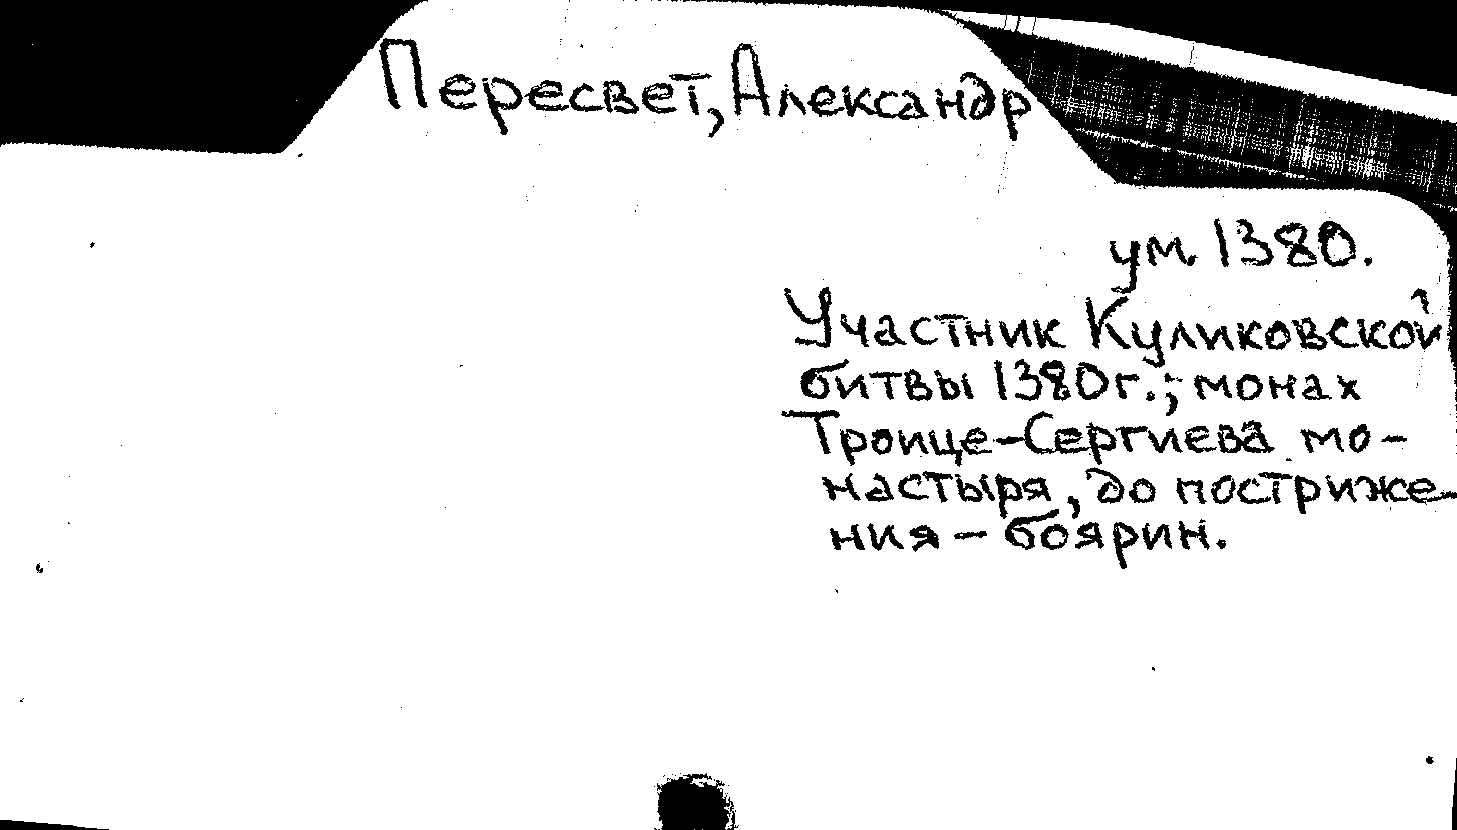 Пересвет, Александр
ум. 1380.
Участник Куликовской
битвы 1380г.; монах
Троице-Сергиева мо-
настыря, до постриже-
ния - боярин.